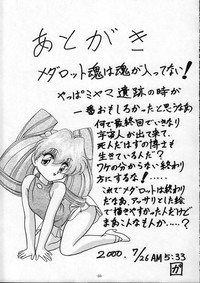 あとがき
メダロット魂は魂が入ってない!
やっぱミヤマ遺跡の時が
一番おもしろかったと思うなあ
何で最終回でいきなり
宇宙人が出て来て、
死んだはずの博士も
生きているんだ?
ワケの分からない終わり
方にするな!
これでメダロットは終わり
だなあ、アッサリとした絵
で描きやすかったんだけど
まあこんなもんか……?
2000. 7/26 AM5:33